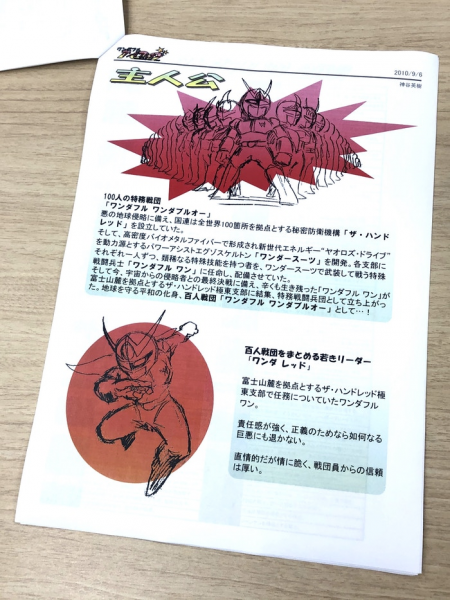 2010/9/6
神谷英樹
主人公
100人の特務戦団
「ワンダフル ワンダブルオー」
悪の地球侵略に備え、国連は全世界100箇所を拠点とする秘密防衛機構「ザ・ハンド
レッド」を設立していた。
そして、高密度バイオメタルファイバーで形成され新世代エネルギー"ヤオロズ・ドライブ"
を動力源とするパワーアシストエグゾスケルトン「ワンダースーツ」を開発。各支部に
それぞれ一人ずつ、類稀なる特殊技能を持つ者を、ワンダースーツで武装して戦う特殊
戦闘兵士「ワンダフル ワン」に任命し、配備させていた。
そして今、宇宙からの侵略者との最終決戦に備え、辛くも生き残った「ワンダフル ワン」が
富士山麓を拠点とするザ・ハンドレッド極東支部に結集、特務戦闘兵団として立ち上がっ
た。地球を守る平和の化身、百人戦団「ワンダフル ワンダブルオー」として…！
百人戦団をまとめる若きリーダー
「ワンダ レッド」
富士山麓を拠点とするザ・ハンドレッド極
東支部で任務についていたワンダフル
ワン。
責任感が強く、正義のためなら如何なる
巨悪にも退かない。
直情的だが情に脆く、戦団員からの信頼
は厚い。